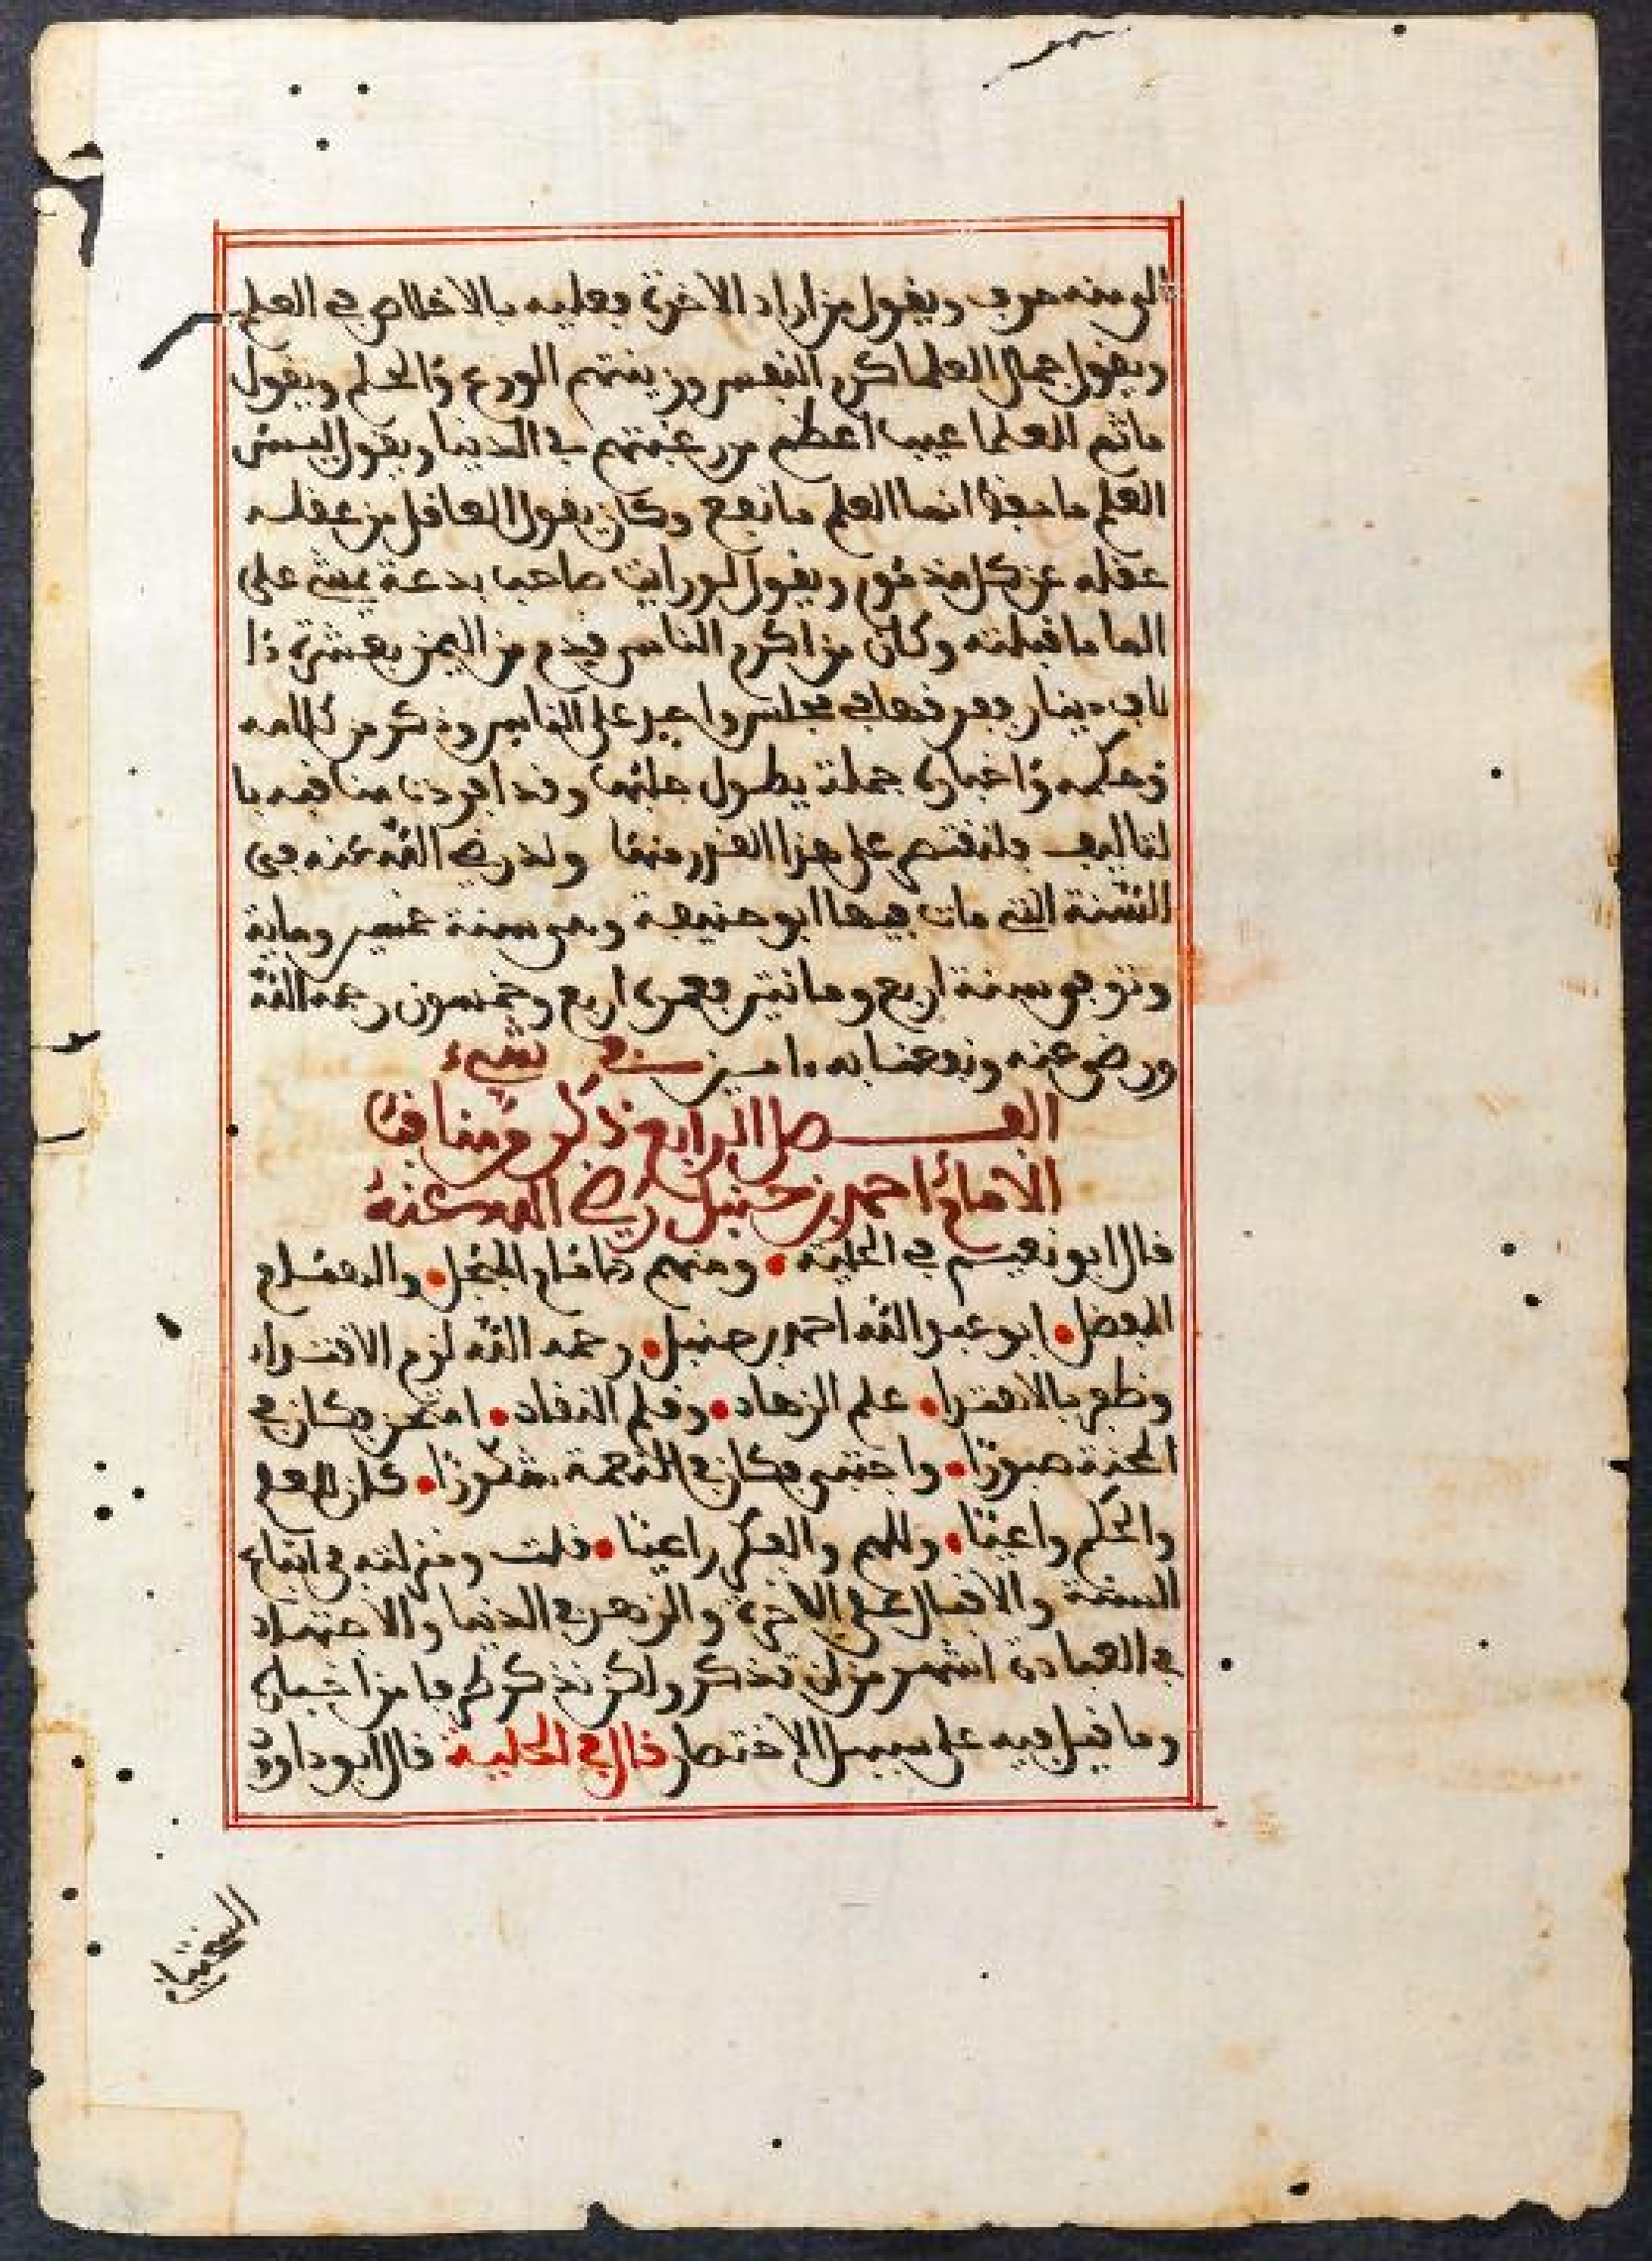 الي منه حرف ويقول من اراد الاخرة فعليه بالاخلاص في العلم
ويقول جمال العلما كرم النفس وزينتهم الورع والحلم ويقول
ما ثم للعلما عيب اعظم من رغبتهم في الدنيا ويقول ليس
العلم ما حفظ انما العلم ما نفع وكان يقول العاقل من عقله
عقله عن كل مذموم ويقول لو رايت صاحب بدعة يمشي على
الما ما قبلته وكان من اكرم الناس قدم من اليمن بعشرة ءا
لاف دينار ففرقها في مجلس واحد على الناس وذكر من كلامه
وحكمه واخباره جملة يطول جلبها وقد افردت مناقبه با
لتاليف فلنقتصر على هذا القدر منها ولد رضي الله عنه في
السنة التي مات فيها ابو حنيفة وهو سنة خمسين وماية
وتوفي سنة اربع ومائتين فعمره اربع وخمسون رحمه الله
ورضي عنه ونفعنا به ءامين
الفصل الرابع في ذكر شيء من مناقب
الامام احمد بن حنبل رضي الله عنه
قال ابو نعيم في الحلية ومنهم الامام المبجل والهمام
المفضل ابو عبد الله احمد بن حنبل رحمه الله لزم الاقتداء
وظفر بالاهتداء علم الزهاد وقلم النقاد امتحن فكان في
المحنة صبورا واجتبي فكان في النعمة شكورا كان للعلم
والحكم واعيا وللهم والفكر راعيا قلت ومنزلته في اتباع
السنة والاقبال على الاخرة والزهد في الدنيا والاجتهاد
في العبادة اشهر من ان تذكر ولكن نذكر طرفا من اخباره
وما قيل فيه على سبيل الاختصار قال في الحلية قال ابو داوود
السختياني